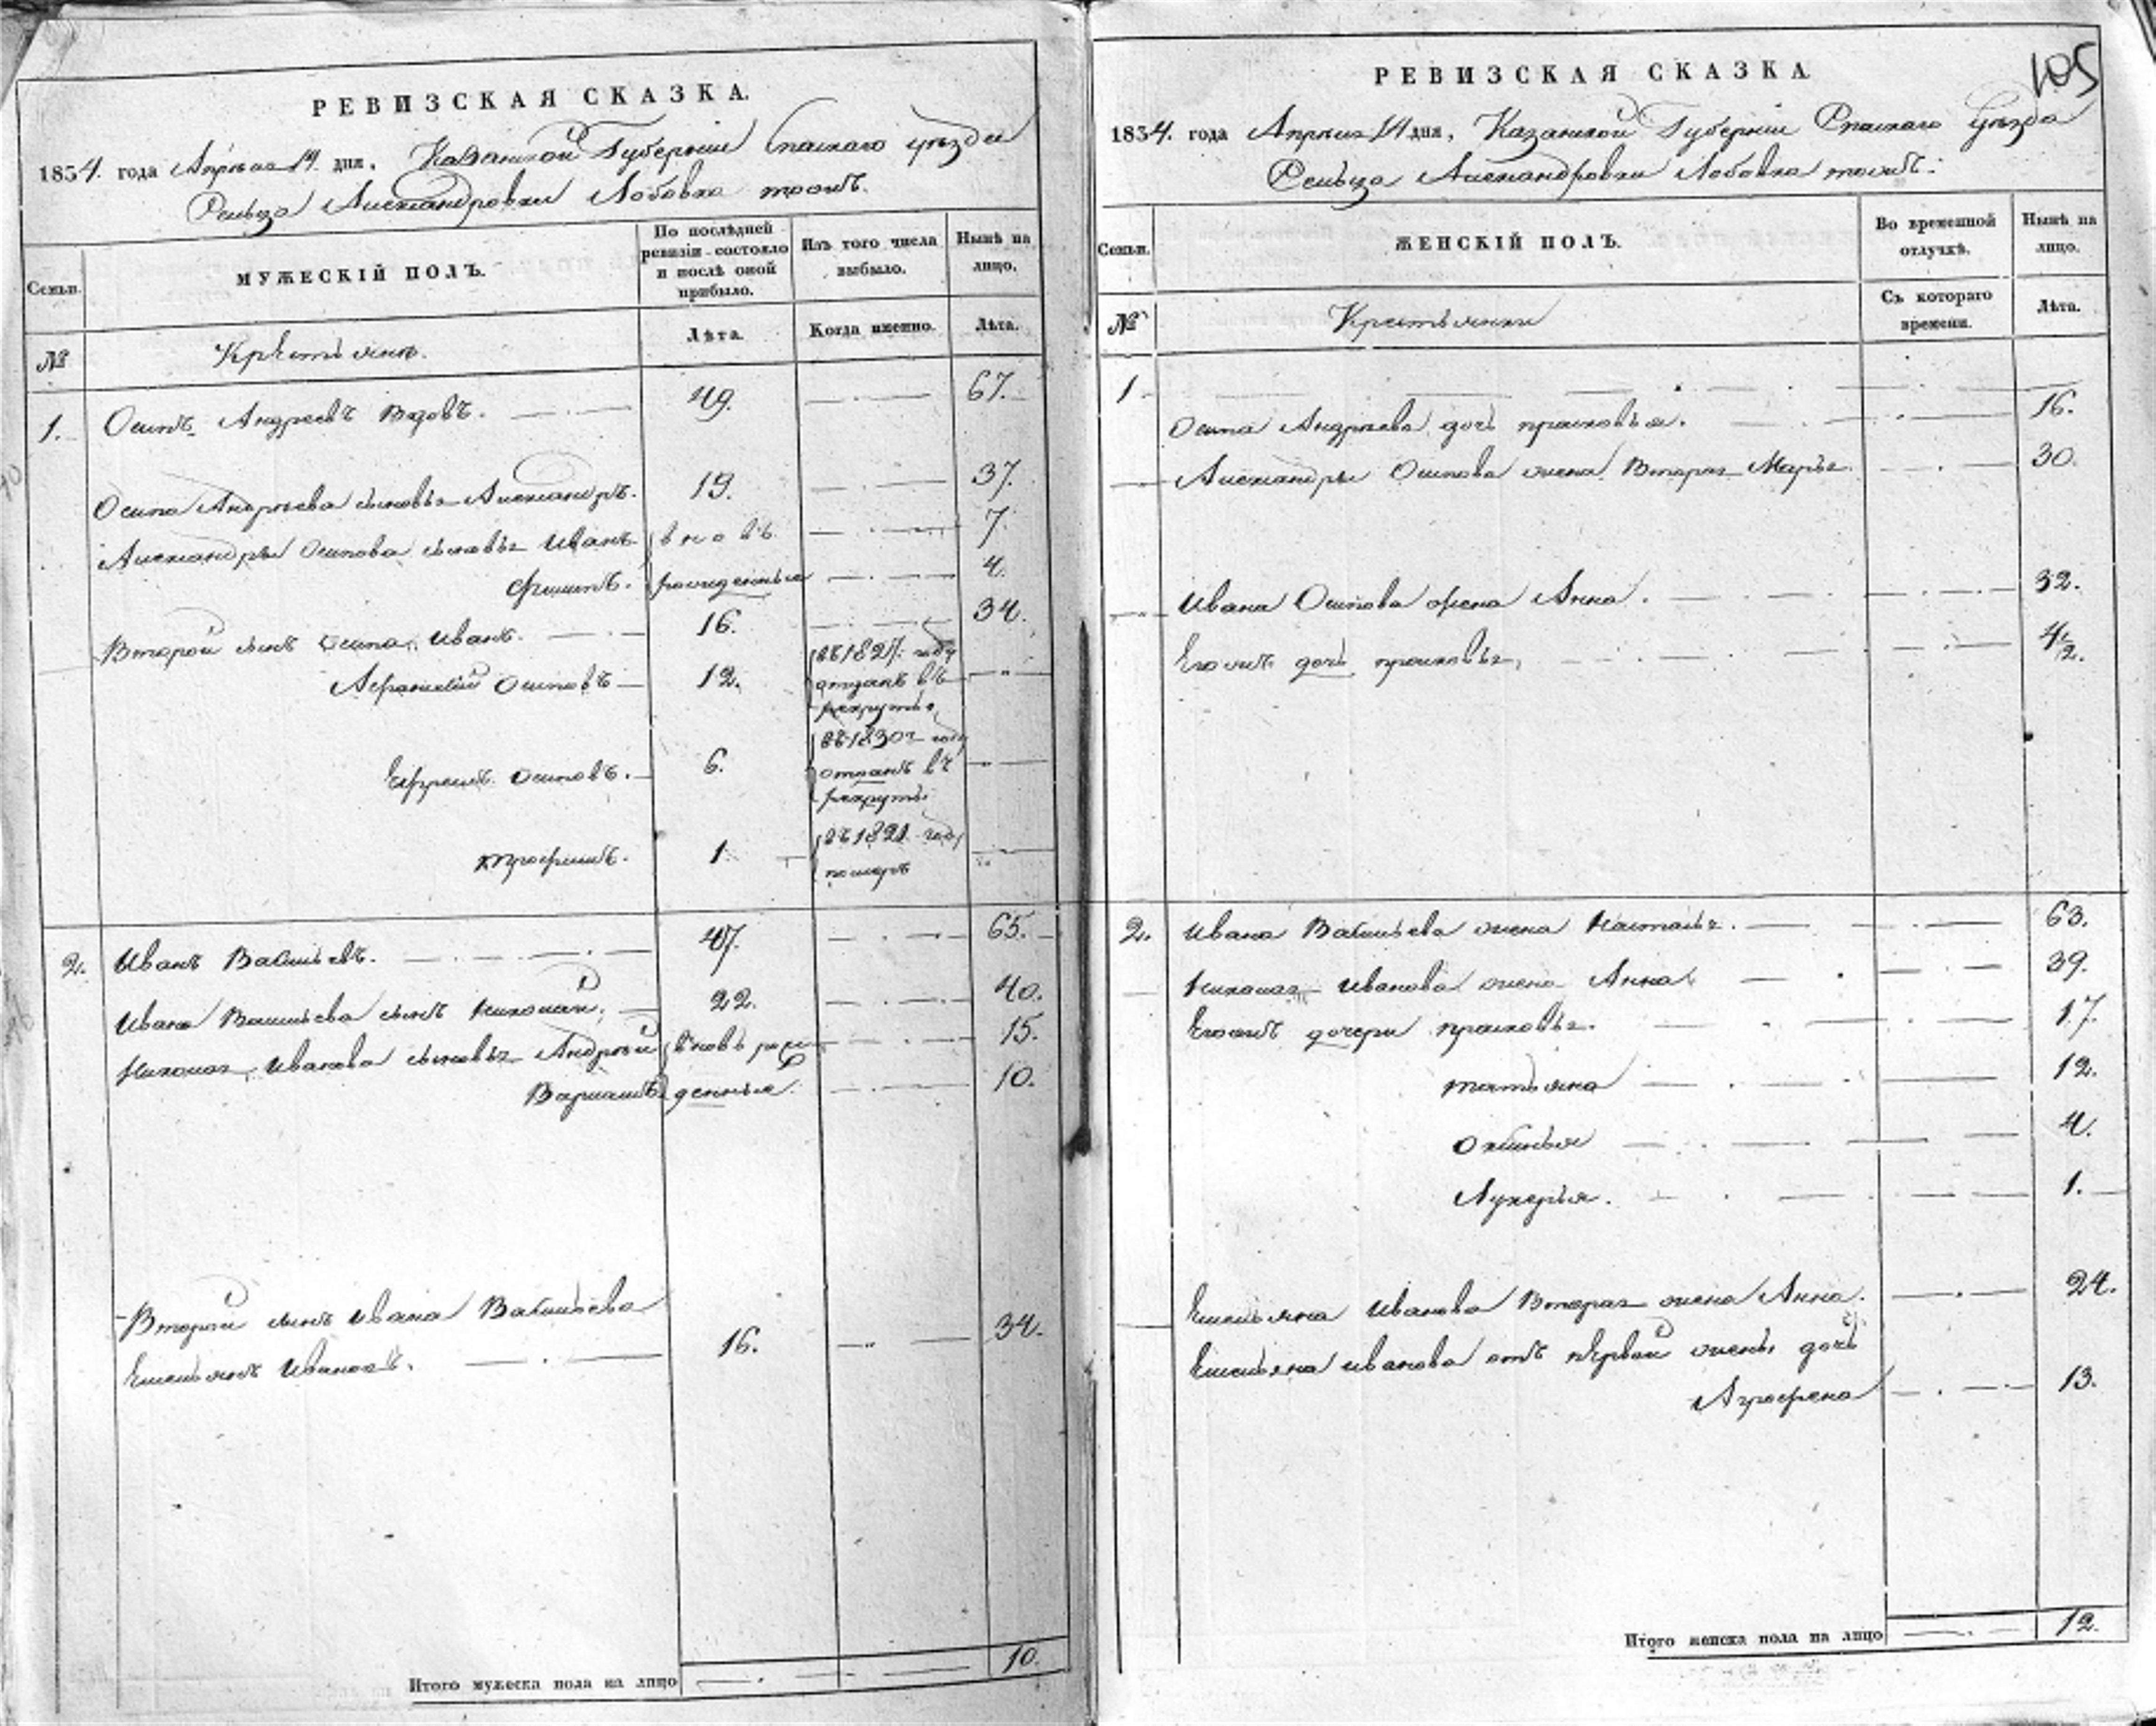 РЕВИЗСКАЯ СКАЗКА.
1834. года Апреля 14. дня. Казанской Губернии Спаскаго уезда
Сельца Александровки Лобовка тожъ.
Семьи.
МУЖЕСКІЙ ПОЛЪ.
По послѣдней ревизіи состояло и послѣ оной прибыло.
Изъ того числа выбыло.
Нынѣ на лицо.
№
Крестьяне.
Лѣта.
Когда именно.
Лѣта.
1. Осипъ Андреевъ 49. 67.
Осипа Андреева сыновья Александръ. 19. 37.
Александры Осипова сыновья Иванъ вновь 7.
Филипъ. рожденныя 4.
Второй сынъ Осипа Иванъ. 16. 34.
Афанасий Осиповъ 12. въ 1827. году
отданъ въ
рекруты
Ефремъ Осиповъ. 6. въ 1830 году
отданъ въ
рекруты
Трофимъ. 1 въ 1821 году
померъ
2. Иванъ Васильевъ. 47. 65.
Ивана Васильева сынъ Николай. 22. 40.
Николая Иванова сыновья Андрей вновь рож 15.
Варламъ денныя. 10.
Второй сынъ Ивана Васильева
Емельянъ Ивановъ. 16. 34.
Итого мужеска пола на лицо 10.
105
РЕВИЗСКАЯ СКАЗКА
1834. года Апреля 14 дня, Казанской Губернии Спаскаго Уезда
Сельца Александровки Лобовка тожъ.
Семьи.
ЖЕНСКІЙ ПОЛЪ.
Во временной отлучкѣ.
Нынѣ на лицо.
№
Крестьянки
Съ котораго времени.
Лѣта.
1
Осипа Андреева дочь прасковья. 16.
Александры Осипова жена Вторая Марья 30.
Ивана Осипова жена Анна. 32.
Егожъ дочь прасковья, 4½.
2. Ивана Васильева жена Насталья. 63.
Николая Иванова жена Анна 39.
Егожъ дочери прасковья. 17.
татьяна 12.
Оксинья 4.
Лукерья. 1.
Емельяна Иванова Вторая жена Анна. 24.
Емельяна Иванова отъ первой жены дочь
Аграфена 13.
Итого женска пола на лицо 12.